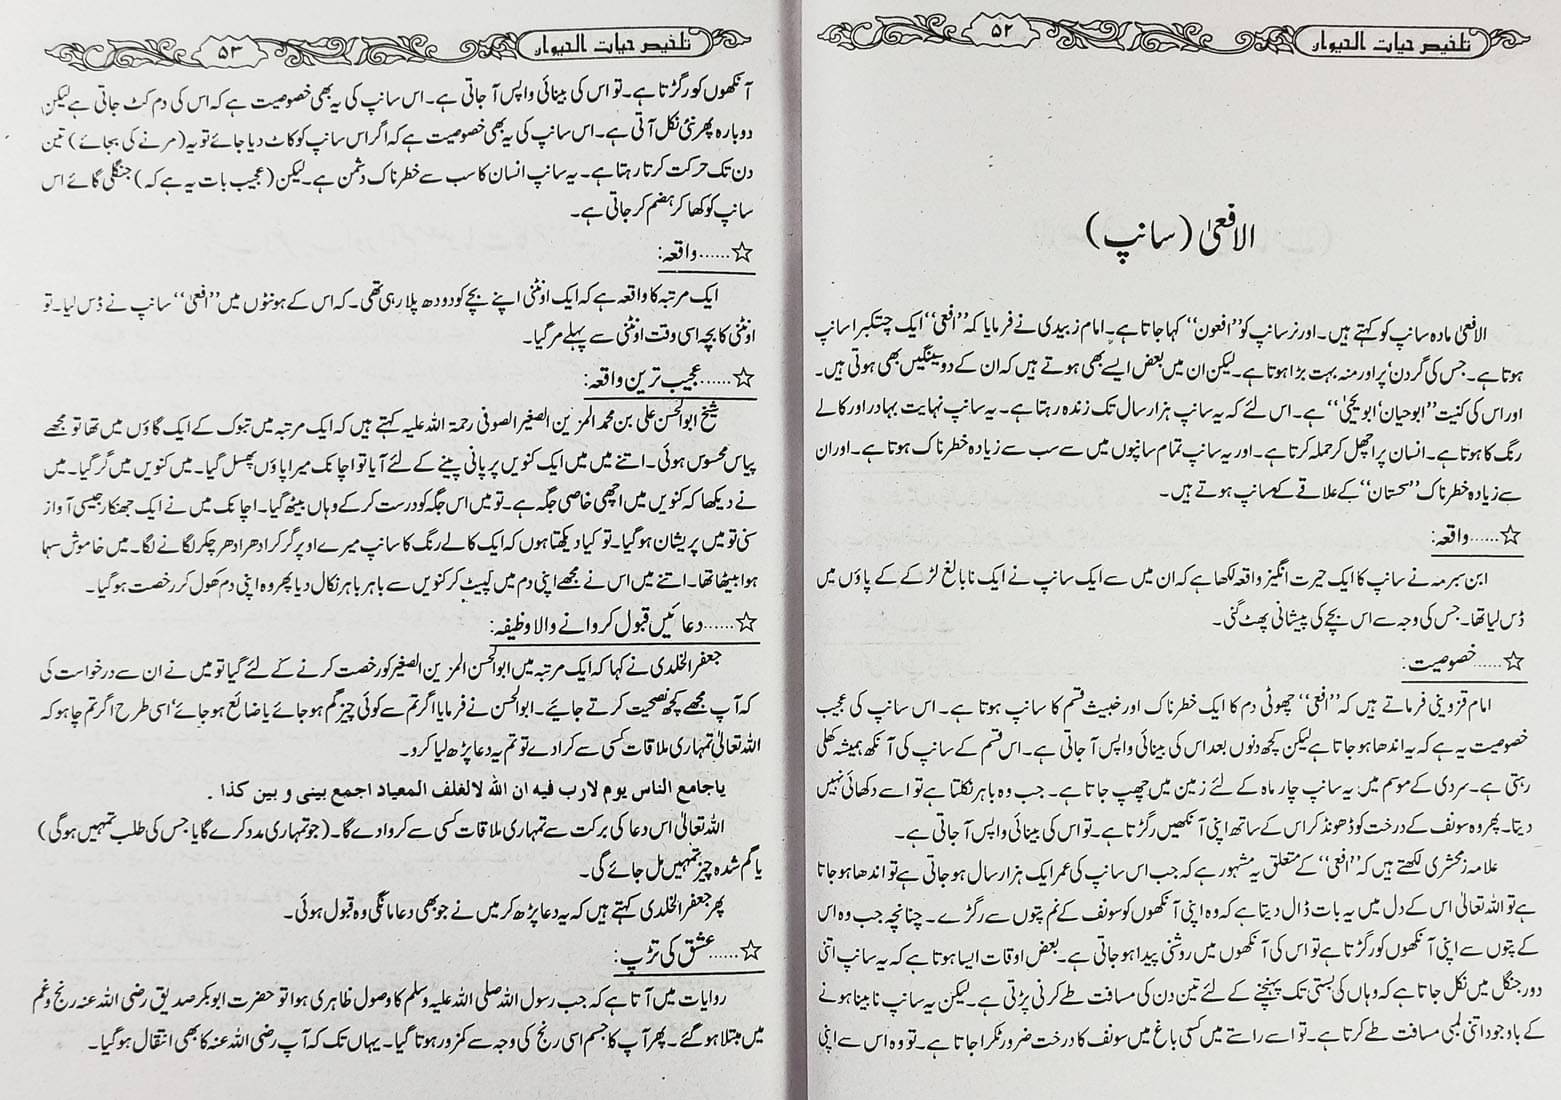 تلخیص حیات الحیوان
۵۲
الافعیٰ (سانپ)
الافعیٰ مادہ سانپ کو کہتے ہیں۔ اور نر سانپ کو ’’افعون‘‘ کہا جاتا ہے۔ امام زبیدی نے فرمایا کہ ’’افعیٰ‘‘ ایک چتکبرا سانپ
ہوتا ہے۔ جس کی گردن پر اور منہ بہت بڑا ہوتا ہے۔ لیکن ان میں بعض ایسے بھی ہوتے ہیں کہ ان کے دو سینگیں بھی ہوتی ہیں۔
اور اس کی کنیت ’’ابو حیان‘ ابو یحییٰ‘‘ ہے۔ اس لئے کہ یہ سانپ ہزار سال تک زندہ رہتا ہے۔ یہ سانپ نہایت بہادر اور کالے
رنگ کا ہوتا ہے۔ انسان پر اچھل کر حملہ کرتا ہے۔ اور یہ سانپ تمام سانپوں میں سے سب سے زیادہ خطرناک ہوتا ہے۔ اور ان
سے زیادہ خطرناک ’’سجستان‘‘ کے علاقے کے سانپ ہوتے ہیں۔
☆......واقعہ:
ابن سبرمہ نے سانپ کا ایک حیرت انگیز واقعہ لکھا ہے کہ ان میں سے ایک سانپ نے ایک نابالغ لڑکے کے پاؤں میں
ڈس لیا تھا۔ جس کی وجہ سے اس بچے کی پیشانی پھٹ گئی۔
☆......خصوصیت:
امام قزوینی فرماتے ہیں کہ ’’افعیٰ‘‘ چھوٹی دم کا ایک خطرناک اور خبیث قسم کا سانپ ہوتا ہے۔ اس سانپ کی عجیب
خصوصیت یہ ہے کہ یہ اندھا ہو جاتا ہے لیکن کچھ دنوں بعد اس کی بینائی واپس آ جاتی ہے۔ اس قسم کے سانپ کی آنکھ ہمیشہ کھلی
رہتی ہے۔ سردی کے موسم میں یہ سانپ چار ماہ کے لئے زمین میں چھپ جاتا ہے۔ جب وہ باہر نکلتا ہے تو اسے دکھائی نہیں
دیتا۔ پھر وہ سونف کے درخت کو ڈھونڈ کر اس کے ساتھ اپنی آنکھیں رگڑتا ہے۔ تو اس کی بینائی واپس آ جاتی ہے۔
علامہ زمخشری لکھتے ہیں کہ ’’افعیٰ‘‘ کے متعلق یہ مشہور ہے کہ جب اس سانپ کی عمر ایک ہزار سال ہو جاتی ہے تو اندھا ہو جاتا
ہے تو اللہ تعالیٰ اس کے دل میں یہ بات ڈال دیتا ہے کہ وہ اپنی آنکھوں کو سونف کے نم پتوں سے رگڑے۔ چنانچہ جب وہ اس
کے پتوں سے اپنی آنکھوں کو رگڑتا ہے تو اس کی آنکھوں میں روشنی پیدا ہو جاتی ہے۔ بعض اوقات ایسا ہوتا ہے کہ یہ سانپ اتنی
دور جنگل میں نکل جاتا ہے کہ وہاں کی بستی تک پہنچنے کے لئے تین دن کی مسافت طے کرنی پڑتی ہے۔ لیکن یہ سانپ نابینا ہونے
کے باوجود اتنی لمبی مسافت طے کرتا ہے۔ تو اسے راستے میں کسی باغ میں سونف کا درخت ضرور ٹکرا جاتا ہے۔ تو وہ اس سے اپنی
تلخیص حیات الحیوان
۵۳
آنکھوں کو رگڑتا ہے۔ تو اس کی بینائی واپس آ جاتی ہے۔ اس سانپ کی یہ بھی خصوصیت ہے کہ اس کی دم کٹ جاتی ہے لیکن
دوبارہ پھر نئی نکل آتی ہے۔ اس سانپ کی یہ بھی خصوصیت ہے کہ اگر اس سانپ کو کاٹ دیا جائے تو یہ (مرنے کی بجائے) تین
دن تک حرکت کرتا رہتا ہے۔ یہ سانپ انسان کا سب سے خطرناک دشمن ہے۔ لیکن (عجیب بات یہ ہے کہ) جنگلی گائے اس
سانپ کو کھا کر ہضم کر جاتی ہے۔
☆......واقعہ:
ایک مرتبہ کا واقعہ ہے کہ ایک اونٹنی اپنے بچے کو دودھ پلا رہی تھی۔ کہ اس کے ہونٹوں میں ’’افعیٰ‘‘ سانپ نے ڈس لیا۔ تو
اونٹنی کا بچہ اسی وقت اونٹنی سے پہلے مر گیا۔
☆......عجیب ترین واقعہ:
شیخ ابوالحسن علی بن محمد المزین الصغیر الصوفی رحمۃ اللہ علیہ کہتے ہیں کہ ایک مرتبہ میں تبوک کے ایک گاؤں میں تھا تو مجھے
پیاس محسوس ہوئی۔ اتنے میں میں ایک کنویں پر پانی پینے کے لئے آیا تو اچانک میرا پاؤں پھسل گیا۔ میں کنویں میں گر گیا۔ میں
نے دیکھا کہ کنویں میں اچھی خاصی جگہ ہے۔ تو میں اس جگہ کو درست کر کے وہاں بیٹھ گیا۔ اچانک میں نے ایک جھنکار جیسی آواز
سنی تو میں پریشان ہو گیا۔ تو کیا دیکھتا ہوں کہ ایک کالے رنگ کا سانپ میرے اوپر گر کر ادھر ادھر چکر لگانے لگا۔ میں خاموش سہما
ہوا بیٹھا تھا۔ اتنے میں اس نے مجھے اپنی دم میں لپیٹ کر کنویں سے باہر باہر نکال دیا پھر وہ اپنی دم کھول کر رخصت ہو گیا۔
☆......دعائیں قبول کروانے والا وظیفہ:
جعفر الخلدی نے کہا کہ ایک مرتبہ میں ابوالحسن المزین الصغیر کو رخصت کرنے کے لئے گیا تو میں نے ان سے درخواست کی
کہ آپ مجھے کچھ نصیحت کرتے جائیے۔ ابوالحسن نے فرمایا اگر تم سے کوئی چیز گم ہو جائے یا ضائع ہو جائے‘ اسی طرح اگر تم چاہو کہ
اللہ تعالیٰ تمہاری ملاقات کسی سے کرا دے تو تم یہ دعا پڑھ لیا کرو۔
یاجامع الناس یوم لارب فیه ان الله لالغلف المعیاد اجمع بینی و بین کذا .
اللہ تعالیٰ اس دعا کی برکت سے تمہاری ملاقات کسی سے کروا دے گا۔ (جو تمہاری مدد کرے گا یا جس کی طلب تمہیں ہو گی)
یا گم شدہ چیز تمہیں مل جائے گی۔
پھر جعفر الخلدی کہتے ہیں کہ یہ دعا پڑھ کر میں نے جو بھی دعا مانگی وہ قبول ہوئی۔
☆......عشق کی تڑپ:
روایات میں آتا ہے کہ جب رسول اللہ صلی اللہ علیہ وسلم کا وصول ظاہری ہوا تو حضرت ابوبکر صدیق رضی اللہ عنہ رنج و غم
میں مبتلا ہو گئے۔ پھر آپ کا جسم اسی رنج کی وجہ سے کمزور ہوتا گیا۔ یہاں تک کہ آپ رضی اللہ عنہ کا بھی انتقال ہو گیا۔